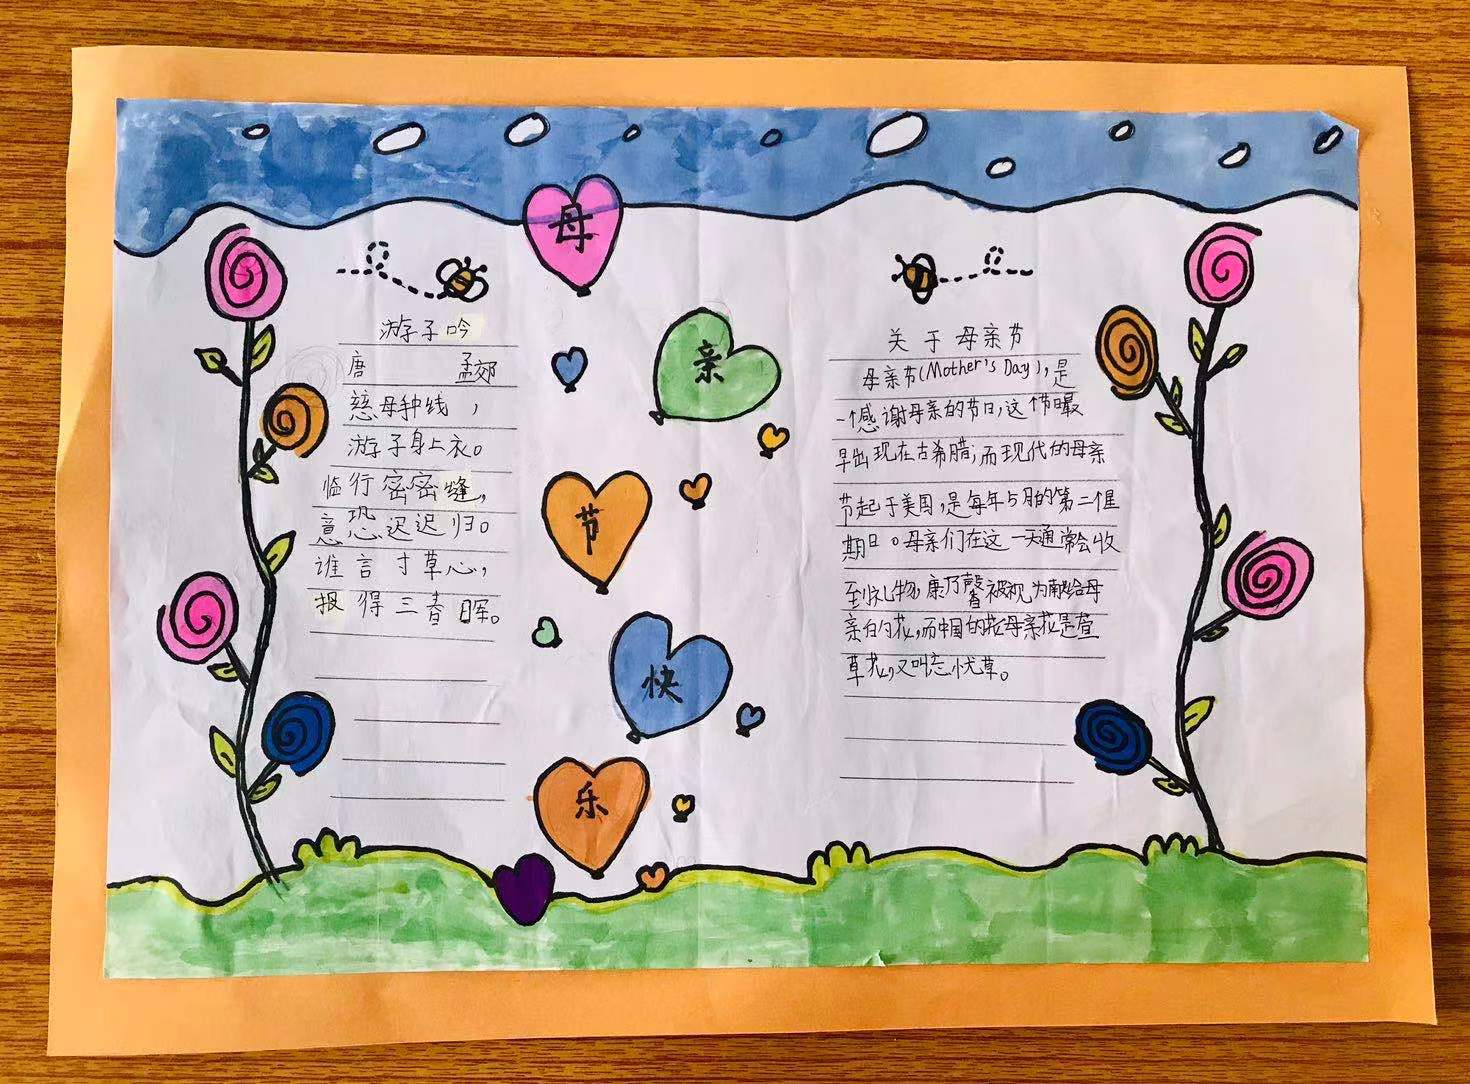 母
亲
节
快
乐
游子吟
唐 孟郊
慈母种线，
游子身上衣。
临行密密缝，
意恐迟迟归。
谁言寸草心，
报得三春晖。
关于母亲节
母亲节(Mother's Day)，是
一个感谢母亲的节日，这个节日最
早出现在古希腊；而现代的母亲
节起于美国，是每年5月的第二个星
期日。母亲们在这一天通常会收
到礼物，康乃馨被视为献给母
亲的花，而中国的花母亲花是萱
草花，又叫忘忧草。